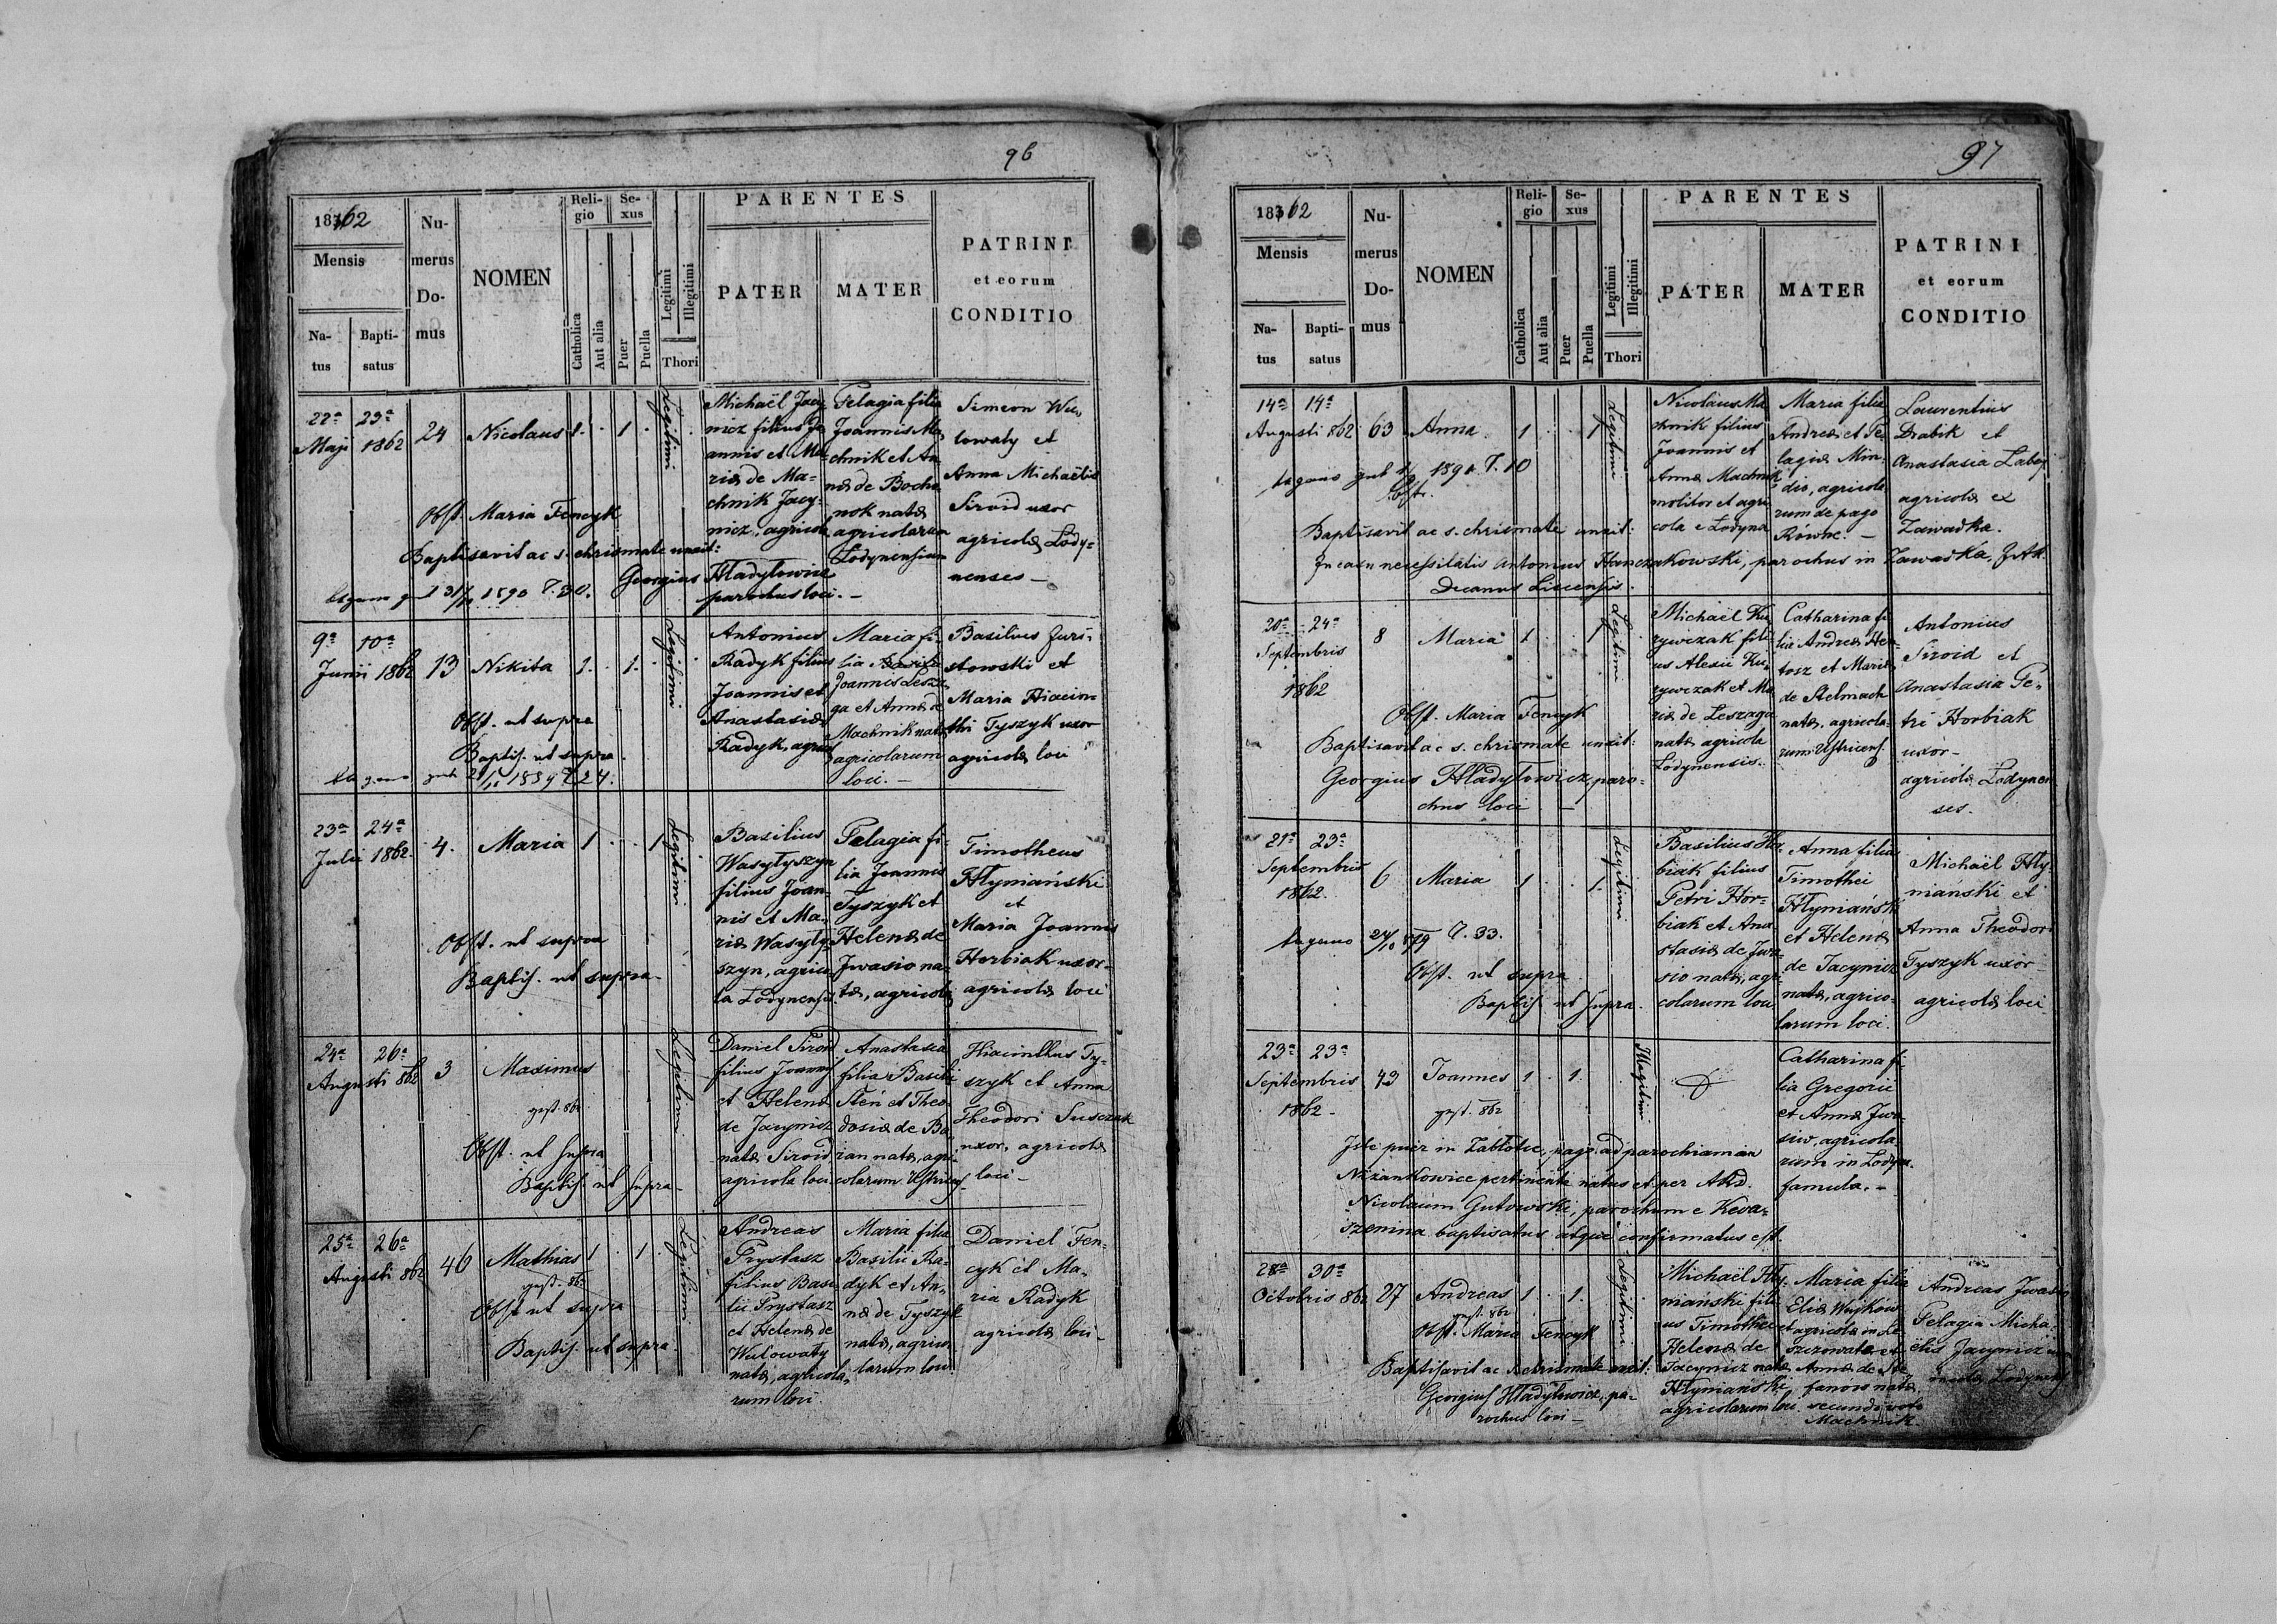 96
1862
Mensis
Na-
tus
Bapti-
satus
Nu-
merus
Do-
mus
NOMEN
Reli-
gio
Catholica
Aut alia
Se-
xus
Puer
Puella
Legitimi
Illegitimi
Thori
PARENTES
PATER
MATER
PATRINI
et eorum
CONDITIO
22a 23a
Maji 1862
24
Nicolaus
1 . 1 .
Legitimi
Michaël Jacy
nicz filius Jo
annis et Ma
riæ de Ma-
chnik Jacy-
nicz, agricola
Pelagia filia
Joannis Ma-
chnik et An
næ de Bocha
nok natæ
agricolarum
Lodynensium
Simeon Wu
lowaty et
Anna Michaëlis
Siroid uxor
agricolæ Lody-
nenses
Obst. Maria Fencyk
Baptisavit ac s. chrismate unxit:
Georgius Hladyłowicz
parochus loci. -
1890 T. 30.
9a 10a
Junii 1862
13
Nikita
1 . 1 .
Legitimi
Antonius
Radyk filius
Joannis et
Anastasiæ
Radyk, agric
Maria fi-
lia
Joannis Lesza
ga et Annæ de
Machnik natæ
agricolarum
loci. -
Basilius Juri-
stowski et
Maria Hiacin-
thi Tyszyk uxor
agricolæ loci
Obst. ut supra
Baptis. ut supra
23a 24a
Julii 1862.
4.
Maria
1 . . 1
Legitimi
Basilius
Wasyłyszyn
filius Joan-
nis et Ma-
riæ Wasyły-
szyn, agrico-
la Łodynensis
Pelagia fi-
lia Joannis
Tyszyk et
Helenæ de
Jwasio na-
tæ, agricolæ
Timotheus
Hłyniański
et
Maria Joannis
Horbiak uxor
agricolæ loci
Obst. ut supra
Baptis. ut supra
24a 26a
Augusti 862
3
Maximus
Legitimi
Daniel Siroid
filius Joannis
et Helenæ
de Jacynicz
natæ Siroid,
agricola loci
Anastasia
filia Basilii
Steń et Theo
dosiæ de Ba
ran natæ, agri-
colarum Ustricens
Hiacinthus Ty-
szyk et Anna
Theodori Susczak
uxor, agricolæ
loci -
Obst. ut supra
Baptis. ut supra
25a 26a
Augusti 862
46
Mathias
1 . 1 .
Legitimi
Andreas
Prystasz
filius Basi-
lii Prystasz
et Helenæ de
Wulowaty
natæ, agricola-
rum loci.
Maria filia
Basilii Ra-
dyk et An-
næ de Tyszyk
natæ, agrico-
larum loci
Daniel Fen-
cyk et Ma-
ria Radyk
agricolæ loci
Obst. ut supra
Baptis. ut supra
97
1862
Mensis
Na-
tus
Bapti-
satus
Nu-
merus
Do-
mus
NOMEN
Reli-
gio
Catholica
Aut alia
Se-
xus
Puer
Puella
Legitimi
Illegitimi
Thori
PARENTES
PATER
MATER
PATRINI
et eorum
CONDITIO
14a 14a
Augusti 862
63
Anna
1 . . 1
Legitimi
Nicolaus Ma
chnik filius
Joannis et
Annæ Machnik
molitor et agri
cola e Lodyna
Maria filia
Andreæ et Pe-
lagiæ Min-
dio, agricola-
rum de pago
Równe. -
Laurentius
Drabik et
Anastasia
agricolæ ex
Zawadka.
1890 T. 10
Baptisavit ac s. chrismate unxit:
in casu necessitatis Antonius Hanczakowski, parochus in Zawadka,
Decanus Liscensis.
20a 24a
Septembris
1862
8
Maria
1 . . 1
Legitimi
Michaël Ku
rywczak fili
us Alexii Ku-
rywczak et Ma
riæ de Leszaga
natæ agricola
Łodynensis.
Catharina fi
lia Andreæ Hen
tosz et Mariæ
de Stelmach
natæ, agricola-
rum Ustricens.
Antonius
Siroid et
Anastasia Pe-
tri Horbiak
uxor -
agricolæ Łodynen
ses.
Obst. Maria Fencyk
Baptisavit ac s. chrismate unxit:
Georgius Hladyłowicz, paro-
chus loci -
21a 23a
Septembris
1862.
6
Maria
1 . . 1
Legitimi
Basilius Hor-
biak filius
Petri Hor-
biak et Ana
stasiæ de Jwa-
sio natæ, agri-
colarum loci
Anna filia
Timothei
Hłyniański
et Helenæ
de Jacynicz
natæ, agrico-
larum loci.
Michaël Hły
nianski et
Anna Theodori
Tyszyk uxor -
agricolæ loci
T. 33.
Obst. ut supra
Baptis. ut supra.
23a 23a
Septembris
1862 -
43
Joannes
1 . 1 .
Illegitimi
Catharina fi-
lia Gregorii
et Annæ Jwa-
siw, agricola-
rum in Lodyn.
famula. -
Iste puer in Zabłotce, pago ad parochiam in
Niżankowice pertinente natus et per
Nicolaum Gutowski, parochum e
baptisatus atque confirmatus est.
28a 30a
Octobris 862
27
Andreas
1 . 1 .
Legitimi
Michaël Hły-
niański fili-
us Timothei et
Helenæ de
Jacynicz natæ
Hłyniański
agricolarum loci
Maria filia
Eliæ Wujków
agricolæ in Le
szczowate et
Annæ de Ste
fanów natæ,
secundo voto
Machnik
Andreas Jwasio
Pelagia Micha
ëlis Jacynicz uxor
Obst. Maria Fencyk
Baptisavit ac s. chrismate unxit:
Georgius Hładyłowicz, pa-
rochus loci -